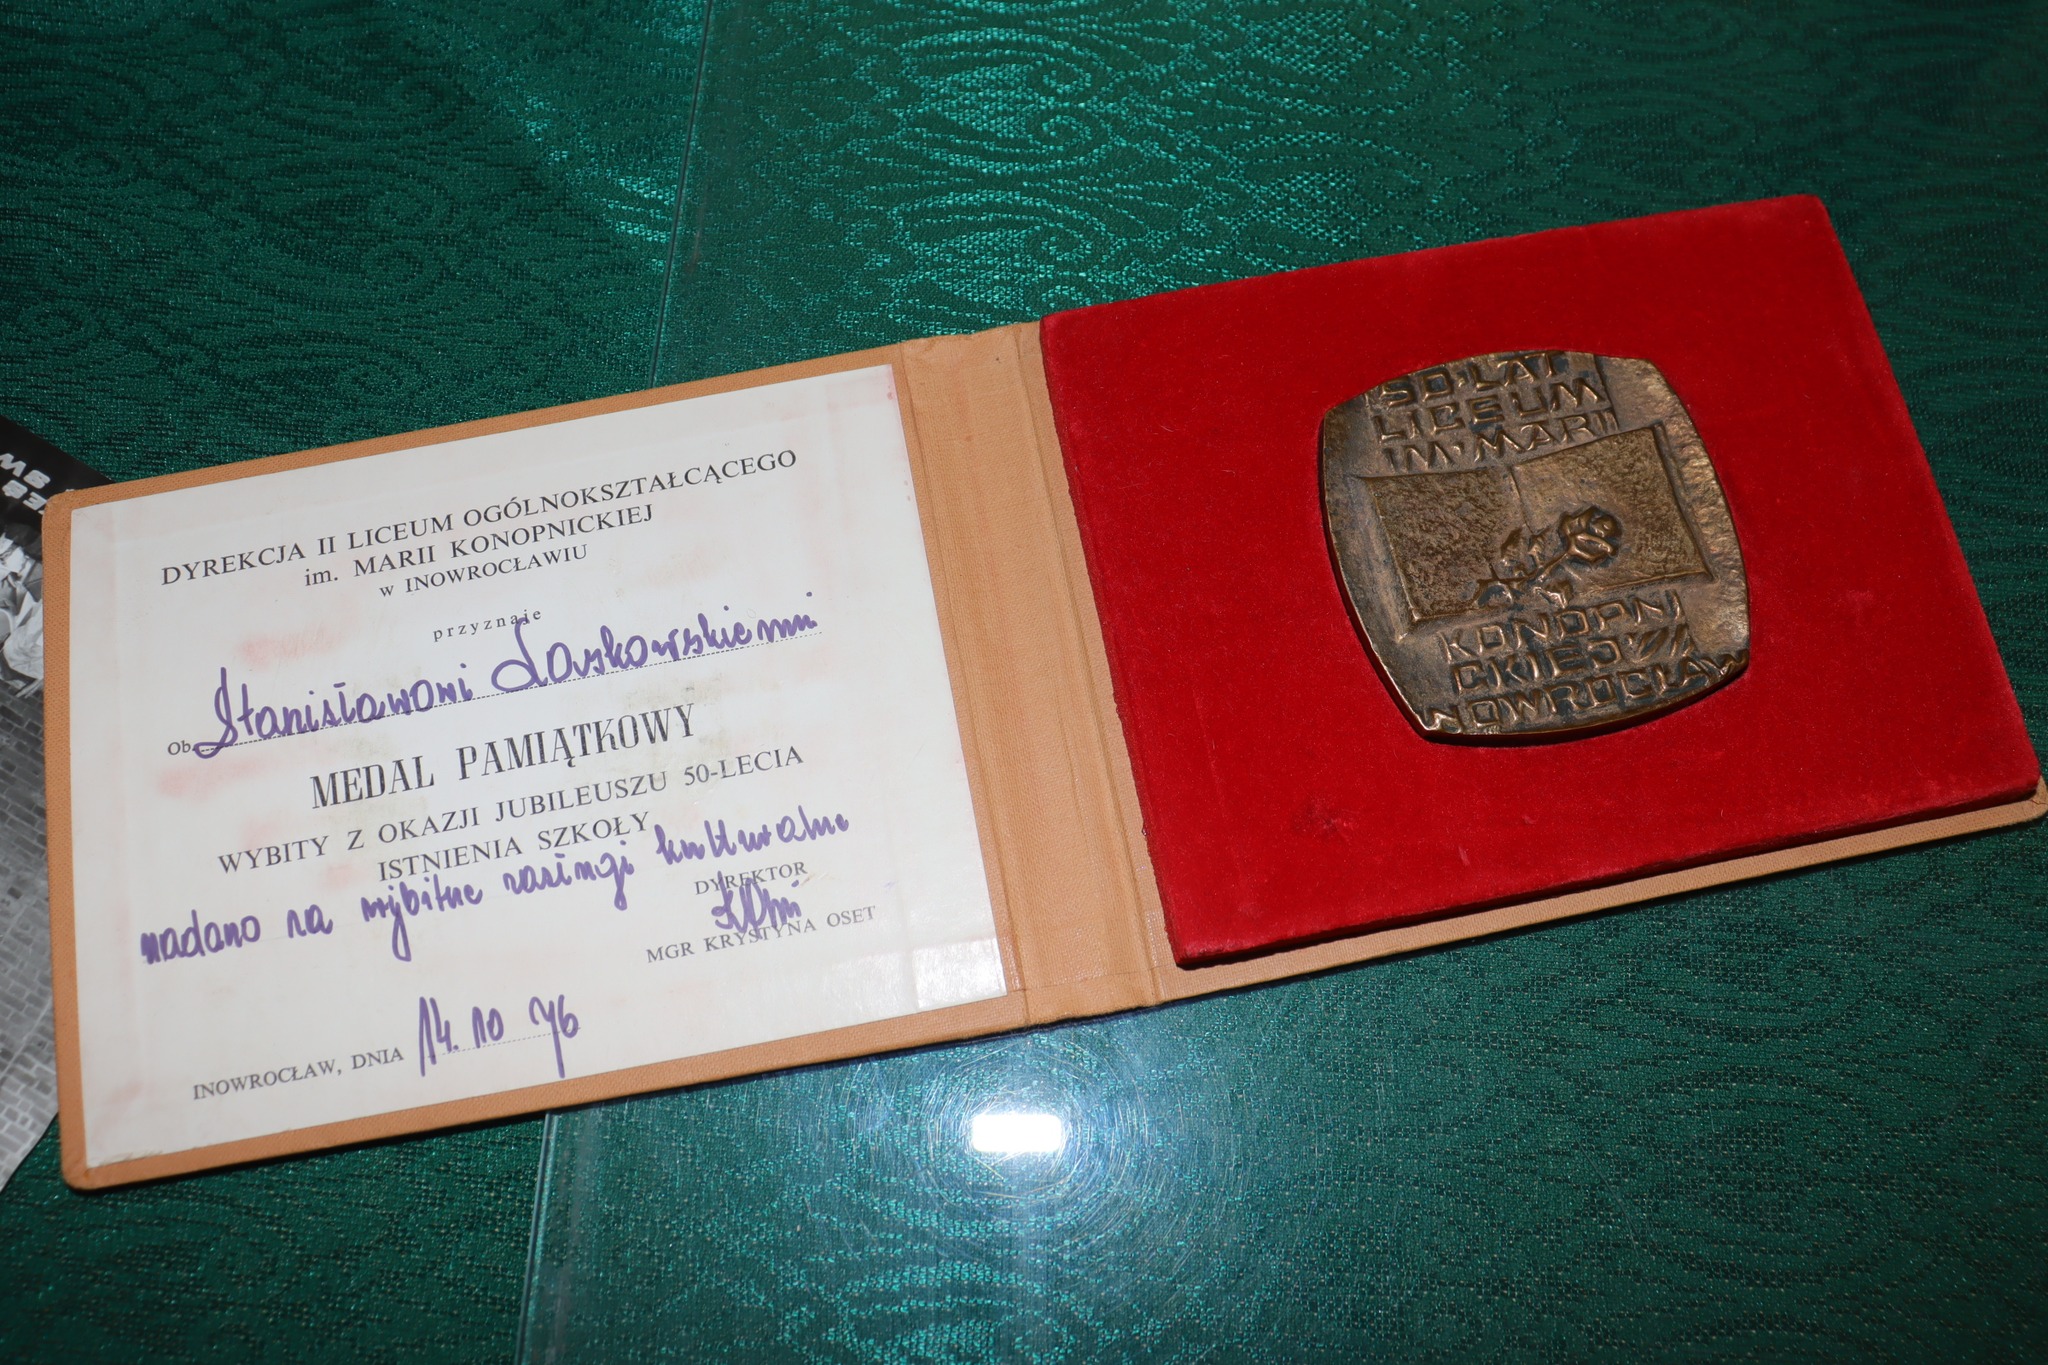 DYREKCJA II LICEUM OGÓLNOKSZTAŁCĄCEGO
im. MARII KONOPNICKIEJ
w INOWROCŁAWIU
przyznaje
Ob. Stanisławowi Laskowskiemu
MEDAL PAMIĄTKOWY
WYBITY Z OKAZJI JUBILEUSZU 50-LECIA
ISTNIENIA SZKOŁY
nadano na wybitne zasługi kulturalne
DYREKTOR
MGR KRYSTYNA OSET
INOWROCŁAW, DNIA 14.10 76
50·LAT
LICEUM
IM·MARII
KONOPNI
CKIEJ
INOWROCŁAW